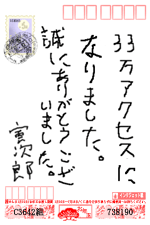 33万アクセスに、
なりました。
誠にありがとうござ
いました。
寅次郎
C3642組
738190